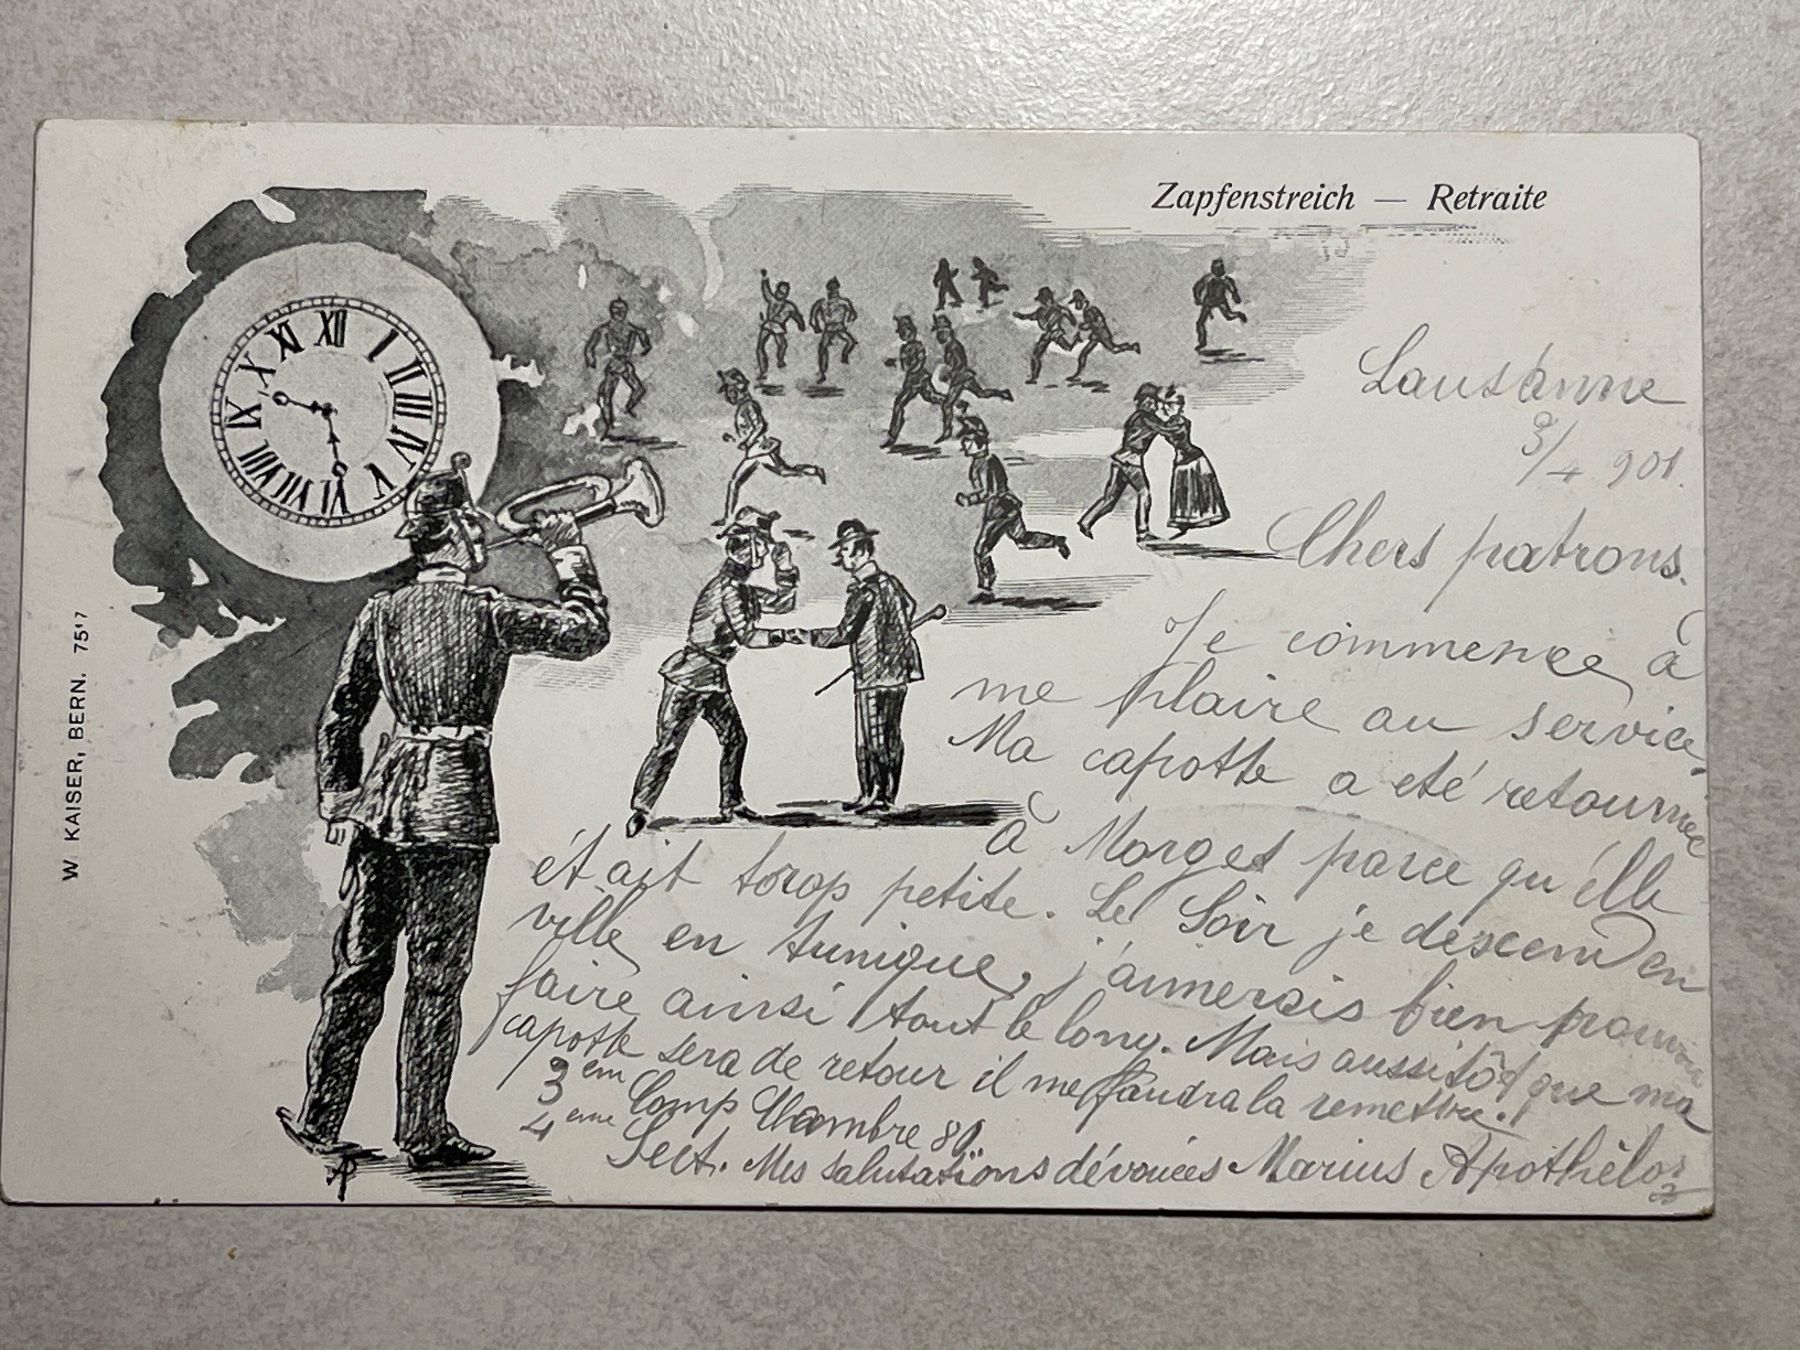 Zapfenstreich — Retraite
XII I II III IV V VI VII VIII IX X XI
W KAISER, BERN. 7517
Lausanne
3/4 901.
Chers patrons.
Je commence à
me plaire au service.
Ma capotte a eté retournée
à Morges parce qu'elle
était torop petite. Le Soir je descend en
ville en tunique, j'aimerais bien pouvoir
faire ainsi tout le long. Mais aussitôt que ma
capotte sera de retour il me faudra la remettre.
3em Comp Chambre 81.
4eme Sect. Mes salutations dévouées Marius Apothéloz
AP